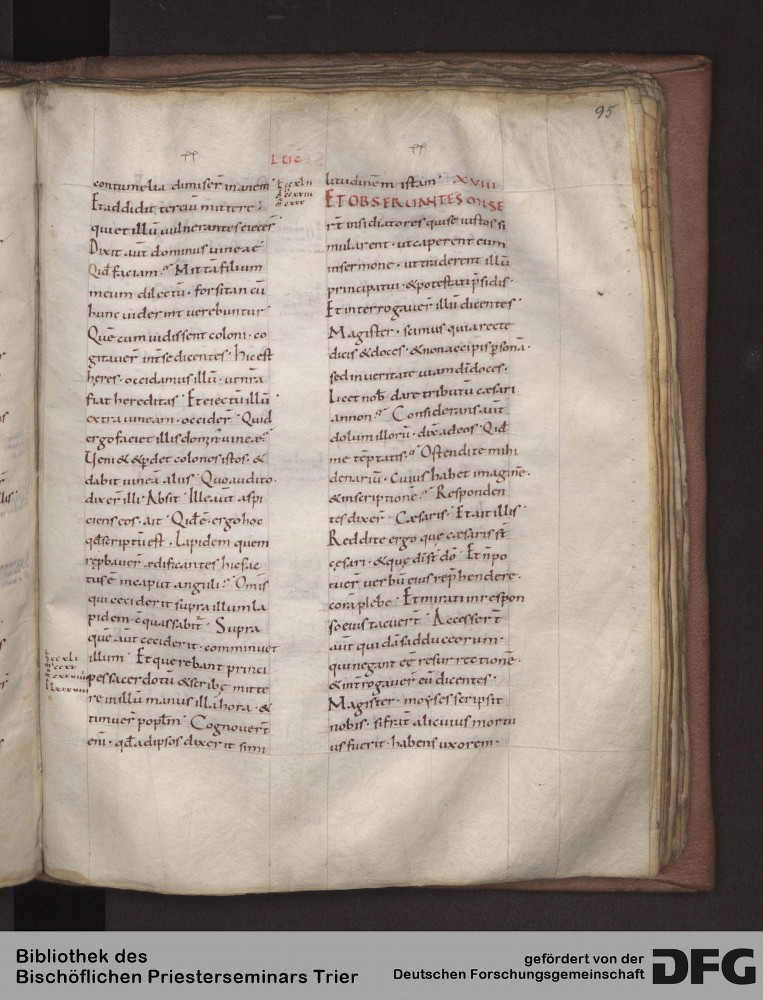 95
contumelia dimiser̄ inanem
Et addidit tertiū mittere.
qui et illū uulnerantes eiecer̄
Dixit aūt dominus uineae
Quid faciam? Mittā filium
meum dilectū. forsitan cū
hunc uiderint uerebuntur
Quē cum uidissent coloni. co
gitauer̄ intr̄ se dicentes. Hic est
heres. occidamus illū. ut nr̄a
fiat hereditas. Et eiectū illū
extra uineam. occider̄. Quid
ergo faciet illis domin' uineae?
Ueni& & p̄d& colonos istos. &
dabit uineā aliis. Quo audito.
dixer̄ illi. Absit. Ille aūt aspi
ciens eos. ait. Qid ē ergo hoc
qđ scriptū est. Lapidem quem
rep̱bauer̄ aedificantes hic fac
tus ē in caput anguli? Omīs
qui ceciderit supra illum la
pidem. cōquassabit̄. Supra
quē aūt ceciderit. comminuet
illum. Et querebant princi
pes sacerdotū & scribę mitte
re in illū manus illa hora. &
timuer̄ popl̄m. Cognouer̄t
eni̅. qđ ad ipsos dixerit simi
litudinem istam. XVIII
ET OBSERUANTES MISE
r̄t insidiatores qui se iustos si
mularent. ut caperent eum
in sermone. ut traderent illū
principatui. & potestati p̄sidis.
Et interrogauer̄ illū dicentes.
Magister. scimus quia recte
dicis & doces. & non accipis p̱sonā.
sed in ueritate uiam dī doces.
Licet nob̄ dare tributū caesari
an non? Considerans aūt
dolum illorū. dix̄ ad eos. Qid
me tēptatis? Ostendite mihi
denariū. Cuius habet imaginē.
& inscriptionē? Responden
tes dixer̄. Caesaris. Et ait illis.
Reddite ergo que caesaris st̄
cęsari. & quę dī st̄ dō. Et n̄ po
tuer̄ uerbū eius rep̄hendere.
corā plebe. Et mirati in respon
so eius tacuer̄t. Accesser̄t
aūt quidā sadduceorum.
qui negant eē resurrectionē.
& intr̄rogauer̄ eū dicentes.
Magister. moyses scripsit
nobis. si frat̄ alicuius mortu
us fuerit. habens uxorem.
Bibliothek des
Bischöflichen Priesterseminars Trier
gefördert von der
Deutschen Forschungsgemeinschaft
DFG